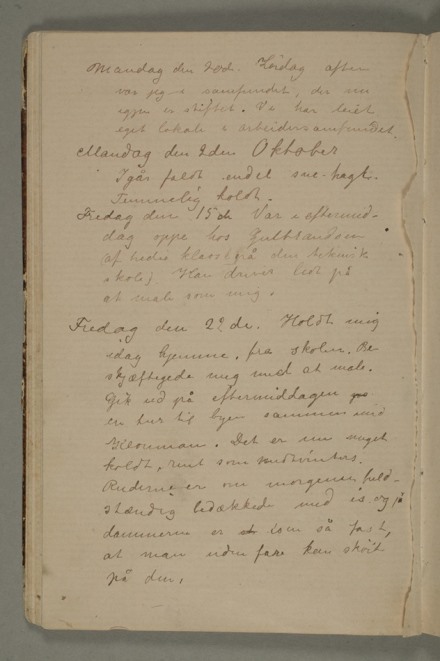 Mandag den 20d. Lördag aften
var jeg i samfundet, der nu
igjen er stiftet. Vi har leiet
eget lokale i arbeidersamfundet.
Mandag den 2den Oktober
Igår faldt endel sne-hagl.
Temmelig koldt.
Fredag den 15de Var i eftermid-
dag oppe hos
(af tredie klasse på den teknisk
skole) Han driver lidt på
at male som mig.
Fredag den 22de. Holdt mig
idag hjemme, fra skolen. Be-
skjæftigede mig med at male.
Gik ud på eftermiddagen
en tur til byen sammen med
Det er nu meget
koldt, rent som midtvinters.
Ruderne er om morgenen fuld-
stændig bedækkede med is og på
dammerne er isen så fast,
at man uden fare kan
på den,